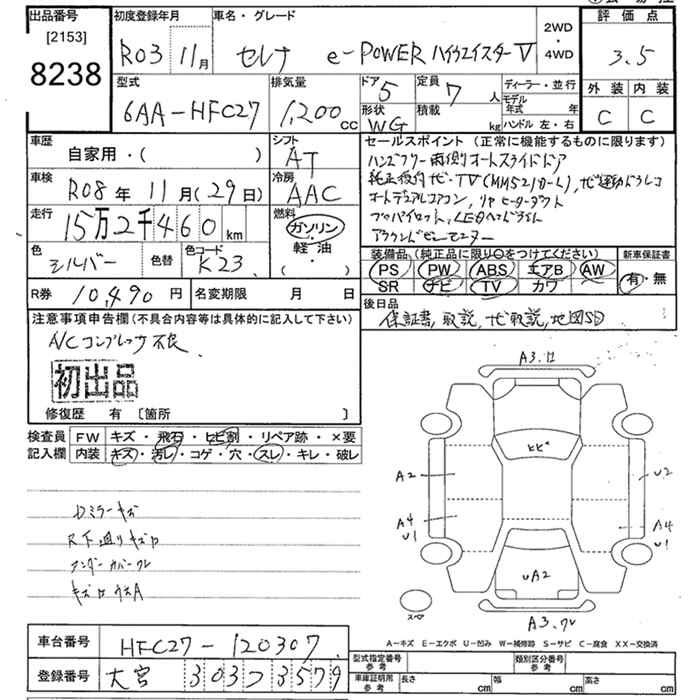 出品番号
[2153]
8238
初度登録年月
R03 11月
車名・グレード
セレナ e-POWER ハイウェイスターV
2WD
・
4WD
評価点
3.5
外装 内装
C C
型式
6AA-HFC27
排気量
1,200 cc
ドア
5
形状
WG
定員
7 人
積載
kg
ディーラー・並行
モデル年式 年
ハンドル 左・右
車歴
自家用・( )
シフト
AT
車検
R08年 11月(29日)
冷房
AAC
走行
15万2千460km
燃料
ガソリン・軽油・( )
色
シルバー
色替
色コード
K23
R券 10,490円
名変期限 月 日
セールスポイント (正常に機能するものに限ります)
ハンズフリー両側オートスライドドア
純正後付ナビ・TV(MM521D-L), ナビ連動ドラレコ
プロパイロット, LEDヘッドライト
アラウンドビューモニター
装備品 (純正品に限り○をつけてください)
PS PW ABS エアB AW
SR ナビ TV カワ
新車保証書
有・無
後日品
保証書, 取説, ナビ取説, 地図SD
注意事項申告欄 (不具合内容等は具体的に記入して下さい)
A/Cコンプレッサ不良
初出品
修復歴 有 [箇所 ]
検査員記入欄
FW キズ・飛石・ヒビ割・リペア跡・×要
内装 キズ・汚レ・コゲ・穴・スレ・キレ・破レ
Dミラーキズ
アンダーカバーワレ
A3.
ヒビ
A2
U2
A4
U1
A4
U1
UA2
スペア
A3.
A-キズ E-エクボ U-凹み W-補修跡 S-サビ C-腐食 XX-交換済
車台番号 HFC27-120307
登録番号 大宮 303 ワ 3579
型式指定番号 参考
類別区分番号 参考
車庫証明用 参考 長さ cm 幅 cm 高さ cm